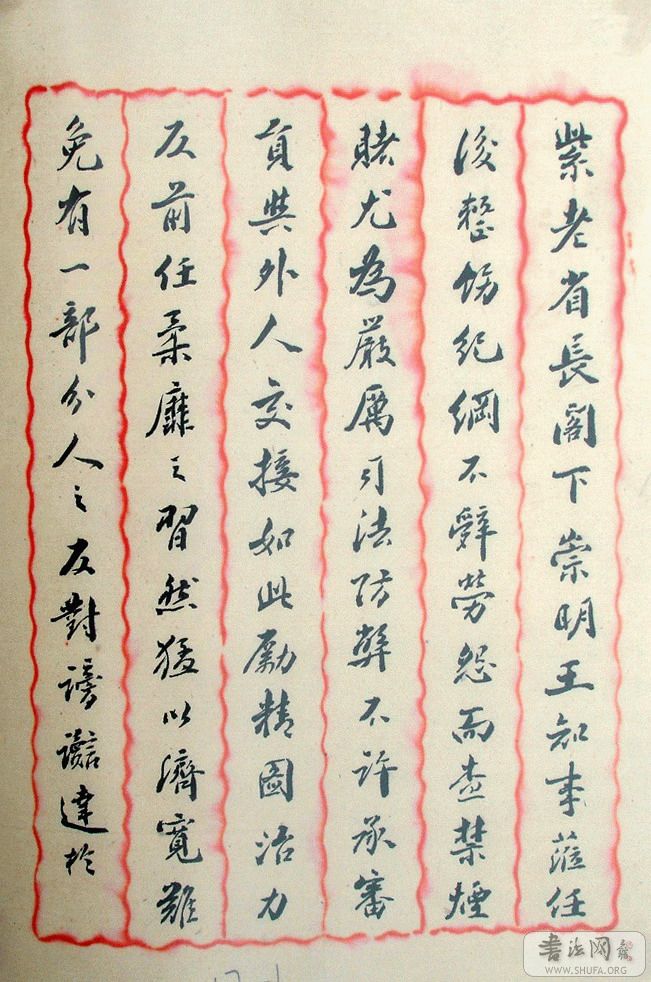 紫老省長閣下崇明王知事蒞任
後整飭紀綱不辭勞怨而查禁煙
賭尤為嚴厲司法防弊不許承審
員與外人交接如此勵精圖治力
反前任柔靡之習然猛以濟寬難
免有一部分人之反對謗讟達於
書法网
WWW.SHUFA.ORG